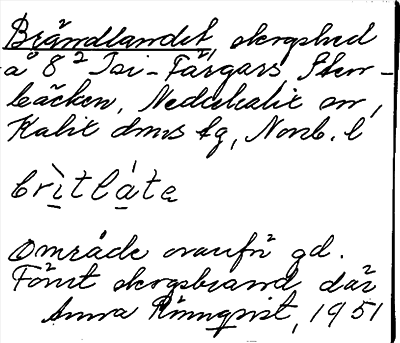 Brändlandet, skogshed
å 8² Isi-Färgars, Sten-
bäcken, Nederkalix sn,
Kalix dms tg, Norrb. l
brìtláta
Område ovanför gd.
Förut skogsbrand där
Anna Rönnqvist, 1951